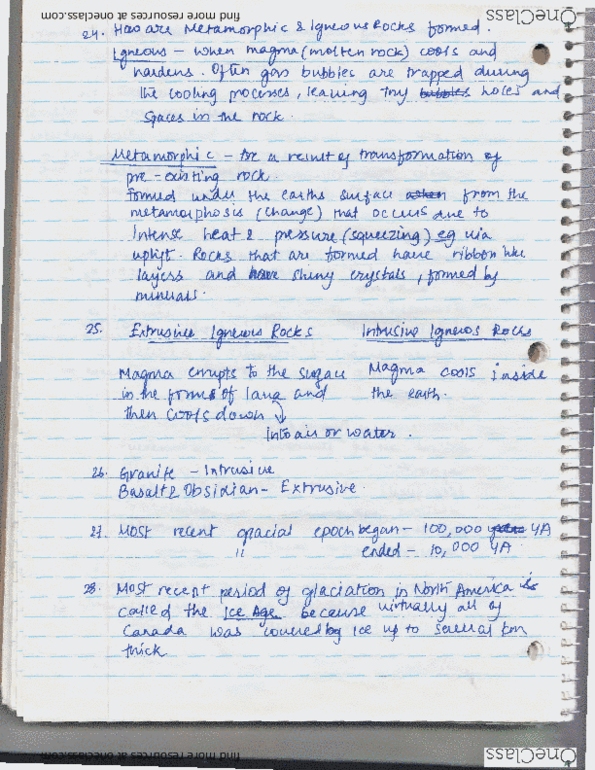 find more resources at oneclass.com
OneClass
24. How are Metamorphic & Igneous Rocks formed.
Igneous – when magma (molten rock) cools and
hardens. Often gas bubbles are trapped during
the cooling processes, leaving tiny bubbles holes and
spaces in the rock.
Metamorphic – Are a result of transformation of
pre-existing rock.
formed under the earths surface when from the
metamorphosis (change) that occurs due to
Intense heat & pressure (squeezing) eg via
uplift. Rocks that are formed have ribbon like
layers and have shiny crystals, formed by
minerals.
25. Extrusive Igneous Rocks Intrusive Igneos Rocks
Magma errupts to the surface Magma cools inside
in the forms of lava and the earth.
then cools down ↓
Into air or water.
26. Granite – Intrusive
Basalt & Obsidian – Extrusive.
27. Most recent glacial epoch began – 100,000 years YA
" ended – 10,000 YA.
28. Most recent period of glaciation in North America is
called the Ice Age because virtually all of
Canada was covered by Ice up to several km
thick
find more resources at oneclass.com
OneClass